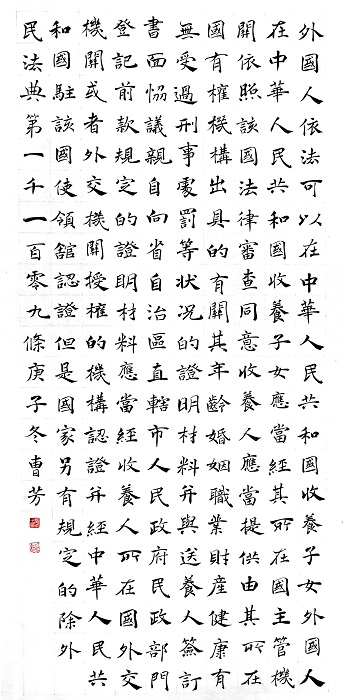 外國人依法可以在中華人民共和國收養子女外國人
在中華人民共和國收養子女應當經其所在國主管機
關依照該國法律審查同意收養人應當提供由其所在
國有權機構出具的有關其年齡婚姻職業財產健康有
無受過刑事處罰等状況的證明材料并與送養人簽訂
書面恊議親自向省自治區直轄市人民政府民政部門
登記前款規定的證明材料應當經收養人所在國外交
機關或者外交機關授權的機構認證并經中華人民共
和國駐該國使領舘認證但是國家另有規定的除外
民法典第一千一百零九條庚子冬曹芳